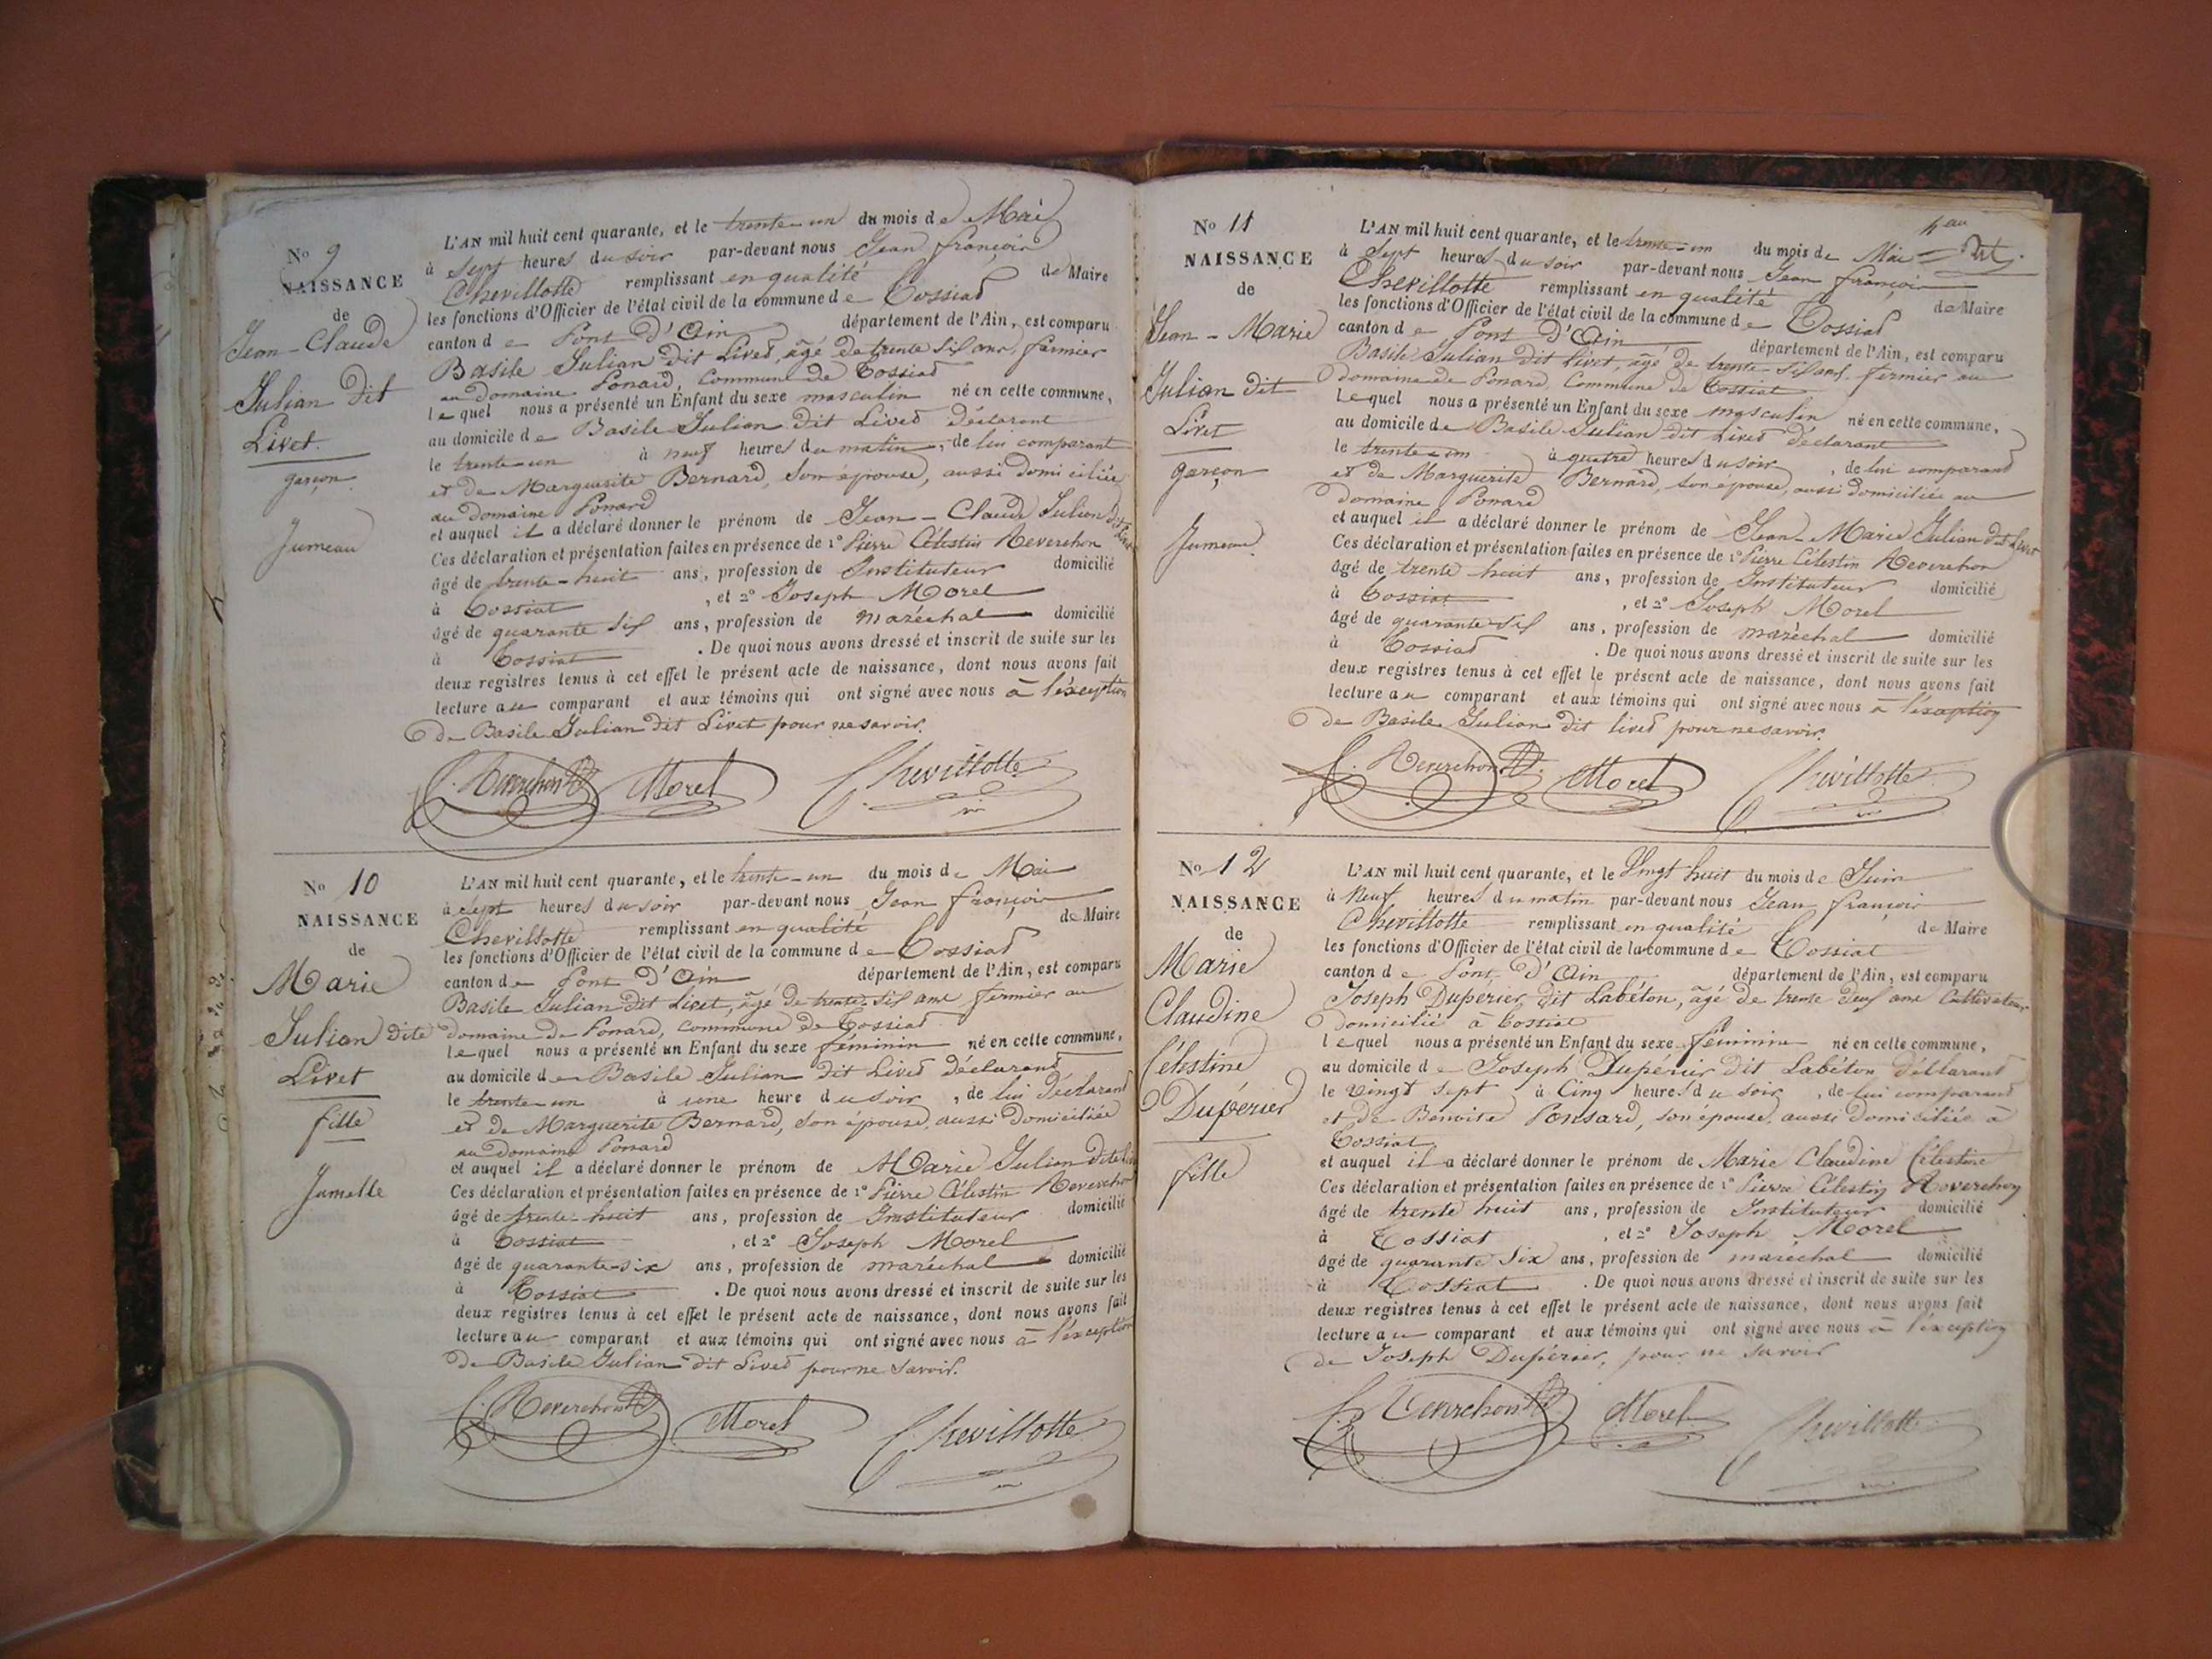 No 9
NAISSANCE
de
Jean-Claude
Julian dit
Livet
garçon
Jumeau
L'AN mil huit cent quarante, et le trente-un du mois de Mai
à Sept heures du soir par-devant nous Jean françois
Chevillotte remplissant en qualité de Maire
les fonctions d'Officier de l'état civil de la commune de Tossiat
canton de Pont D'Ain département de l'Ain, est comparu
Basile Julian dit Livet, âgé de trente six ans, fermier
au domaine Ponard, commune de Tossiat
lequel nous a présenté un Enfant du sexe masculin né en cette commune,
au domicile de Basile Julian dit Livet déclarant
le trente-un à neuf heures du matin, de lui comparant
et de Marguerite Bernard, son épouse, aussi domiciliée
au domaine Ponard
et auquel il a déclaré donner le prénom de Jean-Claude Julian dit Livet
Ces déclaration et présentation faites en présence de 1º Pierre Célestin Reverchon
âgé de trente-huit ans, profession de Instituteur domicilié
à Tossiat, et 2º Joseph Morel
âgé de quarante six ans, profession de maréchal domicilié
à Tossiat. De quoi nous avons dressé et inscrit de suite sur les
deux registres tenus à cet effet le présent acte de naissance, dont nous avons fait
lecture au comparant et aux témoins qui ont signé avec nous à l'exception
de Basile Julian dit Livet pour ne savoir.
C. Reverchon Morel Chevillotte
No 10
NAISSANCE
de
Marie
Julian dite
Livet
fille
Jumelle
L'AN mil huit cent quarante, et le trente-un du mois de Mai
à Sept heures du soir par-devant nous Jean françois
Chevillotte remplissant en qualité de Maire
les fonctions d'Officier de l'état civil de la commune de Tossiat
canton de Pont D'Ain département de l'Ain, est comparu
Basile Julian dit Livet, âgé de trente-six ans fermier au
domaine de Ponard, commune de Tossiat
lequel nous a présenté un Enfant du sexe féminin né en cette commune,
au domicile de Basile Julian dit Livet déclarant
le trente-un à une heure du soir, de lui déclarant
et de Marguerite Bernard, son épouse, aussi domiciliée
au domaine Ponard
et auquel il a déclaré donner le prénom de Marie Julian dite
Ces déclaration et présentation faites en présence de 1º Pierre Célestin Reverchon
âgé de trente-huit ans, profession de Instituteur domicilié
à Tossiat, et 2º Joseph Morel
âgé de quarante-six ans, profession de maréchal domicilié
à Tossiat. De quoi nous avons dressé et inscrit de suite sur les
deux registres tenus à cet effet le présent acte de naissance, dont nous avons fait
lecture au comparant et aux témoins qui ont signé avec nous à l'exception
de Basile Julian dit Livet pour ne savoir.
C. Reverchon Morel Chevillotte
No 11
NAISSANCE
de
Jean-Marie
Julian dit
Livet
garçon
Jumeau
L'AN mil huit cent quarante, et le trente-un du mois de Mai
à Sept heures du soir par-devant nous Jean françois
Chevillotte remplissant en qualité de Maire
les fonctions d'Officier de l'état civil de la commune de Tossiat
canton de Pont D'Ain département de l'Ain, est comparu
Basile Julian dit Livet, âgé de trente-six ans, fermier au
domaine de Ponard, commune de Tossiat
lequel nous a présenté un Enfant du sexe masculin né en cette commune,
au domicile de Basile Julian dit Livet déclarant
le trente-un à quatre heures du soir, de lui comparant
et de Marguerite Bernard, son épouse, aussi domiciliée au
domaine Ponard
et auquel il a déclaré donner le prénom de Jean-Marie Julian dit Livet
Ces déclaration et présentation faites en présence de 1º Pierre Célestin Reverchon
âgé de trente huit ans, profession de Instituteur domicilié
à Tossiat, et 2º Joseph Morel
âgé de quarante-six ans, profession de maréchal domicilié
à Tossiat. De quoi nous avons dressé et inscrit de suite sur les
deux registres tenus à cet effet le présent acte de naissance, dont nous avons fait
lecture au comparant et aux témoins qui ont signé avec nous à l'exception
de Basile Julian dit Livet pour ne savoir.
C. Reverchon Morel Chevillotte
No 12
NAISSANCE
de
Marie
Claudine
Célestine
Dupérier
fille
L'AN mil huit cent quarante, et le Vingt huit du mois de Juin
à Neuf heures du matin par-devant nous Jean françois
Chevillotte remplissant en qualité de Maire
les fonctions d'Officier de l'état civil de la commune de Tossiat
canton de Pont D'Ain département de l'Ain, est comparu
Joseph Dupérier dit Labéton, âgé de trente deux ans Cultivateur
domicilié à Tossiat
lequel nous a présenté un Enfant du sexe féminin né en cette commune,
au domicile de Joseph Dupérier dit Labéton déclarant
le Vingt Sept à Cinq heures du soir, de lui comparant
et de Benoite Ponsard, son épouse, aussi domiciliée à
Tossiat
et auquel il a déclaré donner le prénom de Marie Claudine Célestine
Ces déclaration et présentation faites en présence de 1º Pierre Célestin Reverchon
âgé de trente huit ans, profession de Instituteur domicilié
à Tossiat, et 2º Joseph Morel
âgé de quarante Six ans, profession de maréchal domicilié
à Tossiat. De quoi nous avons dressé et inscrit de suite sur les
deux registres tenus à cet effet le présent acte de naissance, dont nous avons fait
lecture au comparant et aux témoins qui ont signé avec nous à l'exception
de Joseph Dupérier, pour ne savoir
C. Reverchon Morel Chevillotte